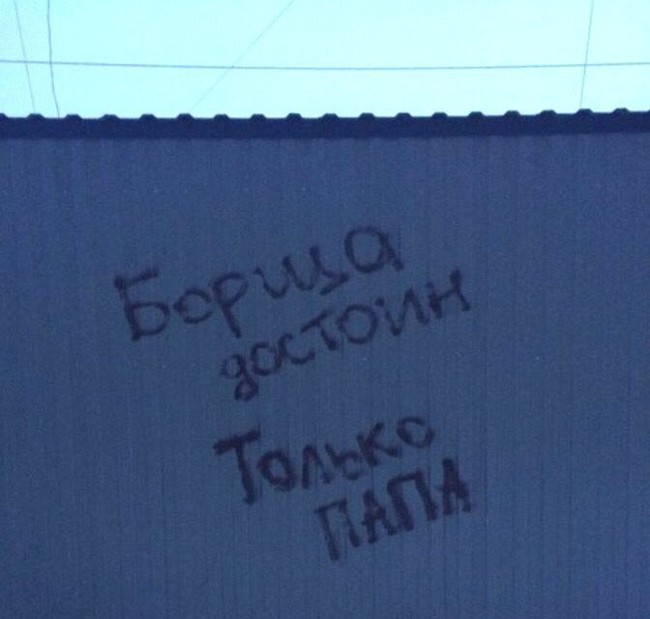 Борща
достоин
Только
ПАПА